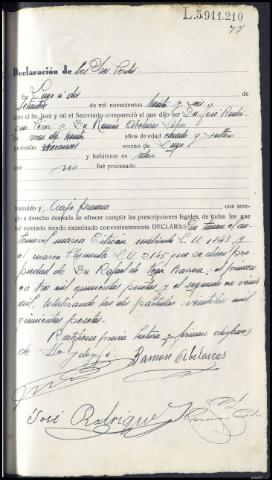 L.5911.210
77
Declaración de los Srs Peritos
En Lugo a dos
Setiembre de mil novecientos treinta y seis
ante el Sr. Juez y mi el Secretario compareció el que dijo ser Dn José Rodrí
guez y Dn Ramón
mas de treinta años de edad casado y soltero
profesión mecanicos vecino de Lugo
y habitante en
que no fué procesado
y
con arre-
glo a derecho después de ofrecer cumplir las prescripciones legales, de todas las que
fué enterado siendo examinado convenientemente DECLARA: Que tasan el au-
tomovil marca Citroën matricula L.U. 1943 y
el marca Plymouth L.U. 2145 que se dicen pro-
piedad de Dn Rafael de Vega Barrera, el primero
en tres mil quinientas pesetas y el segundo en veinte
mil, totalizando las dos partidas veintitres mil
quinientas pesetas.
Ratifícase previa lectura y firman despues
de S.Sª y doy fe.
Ramon
José Rodriguez